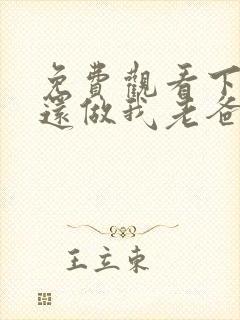 免費觀看下
還做我老爸
王立東